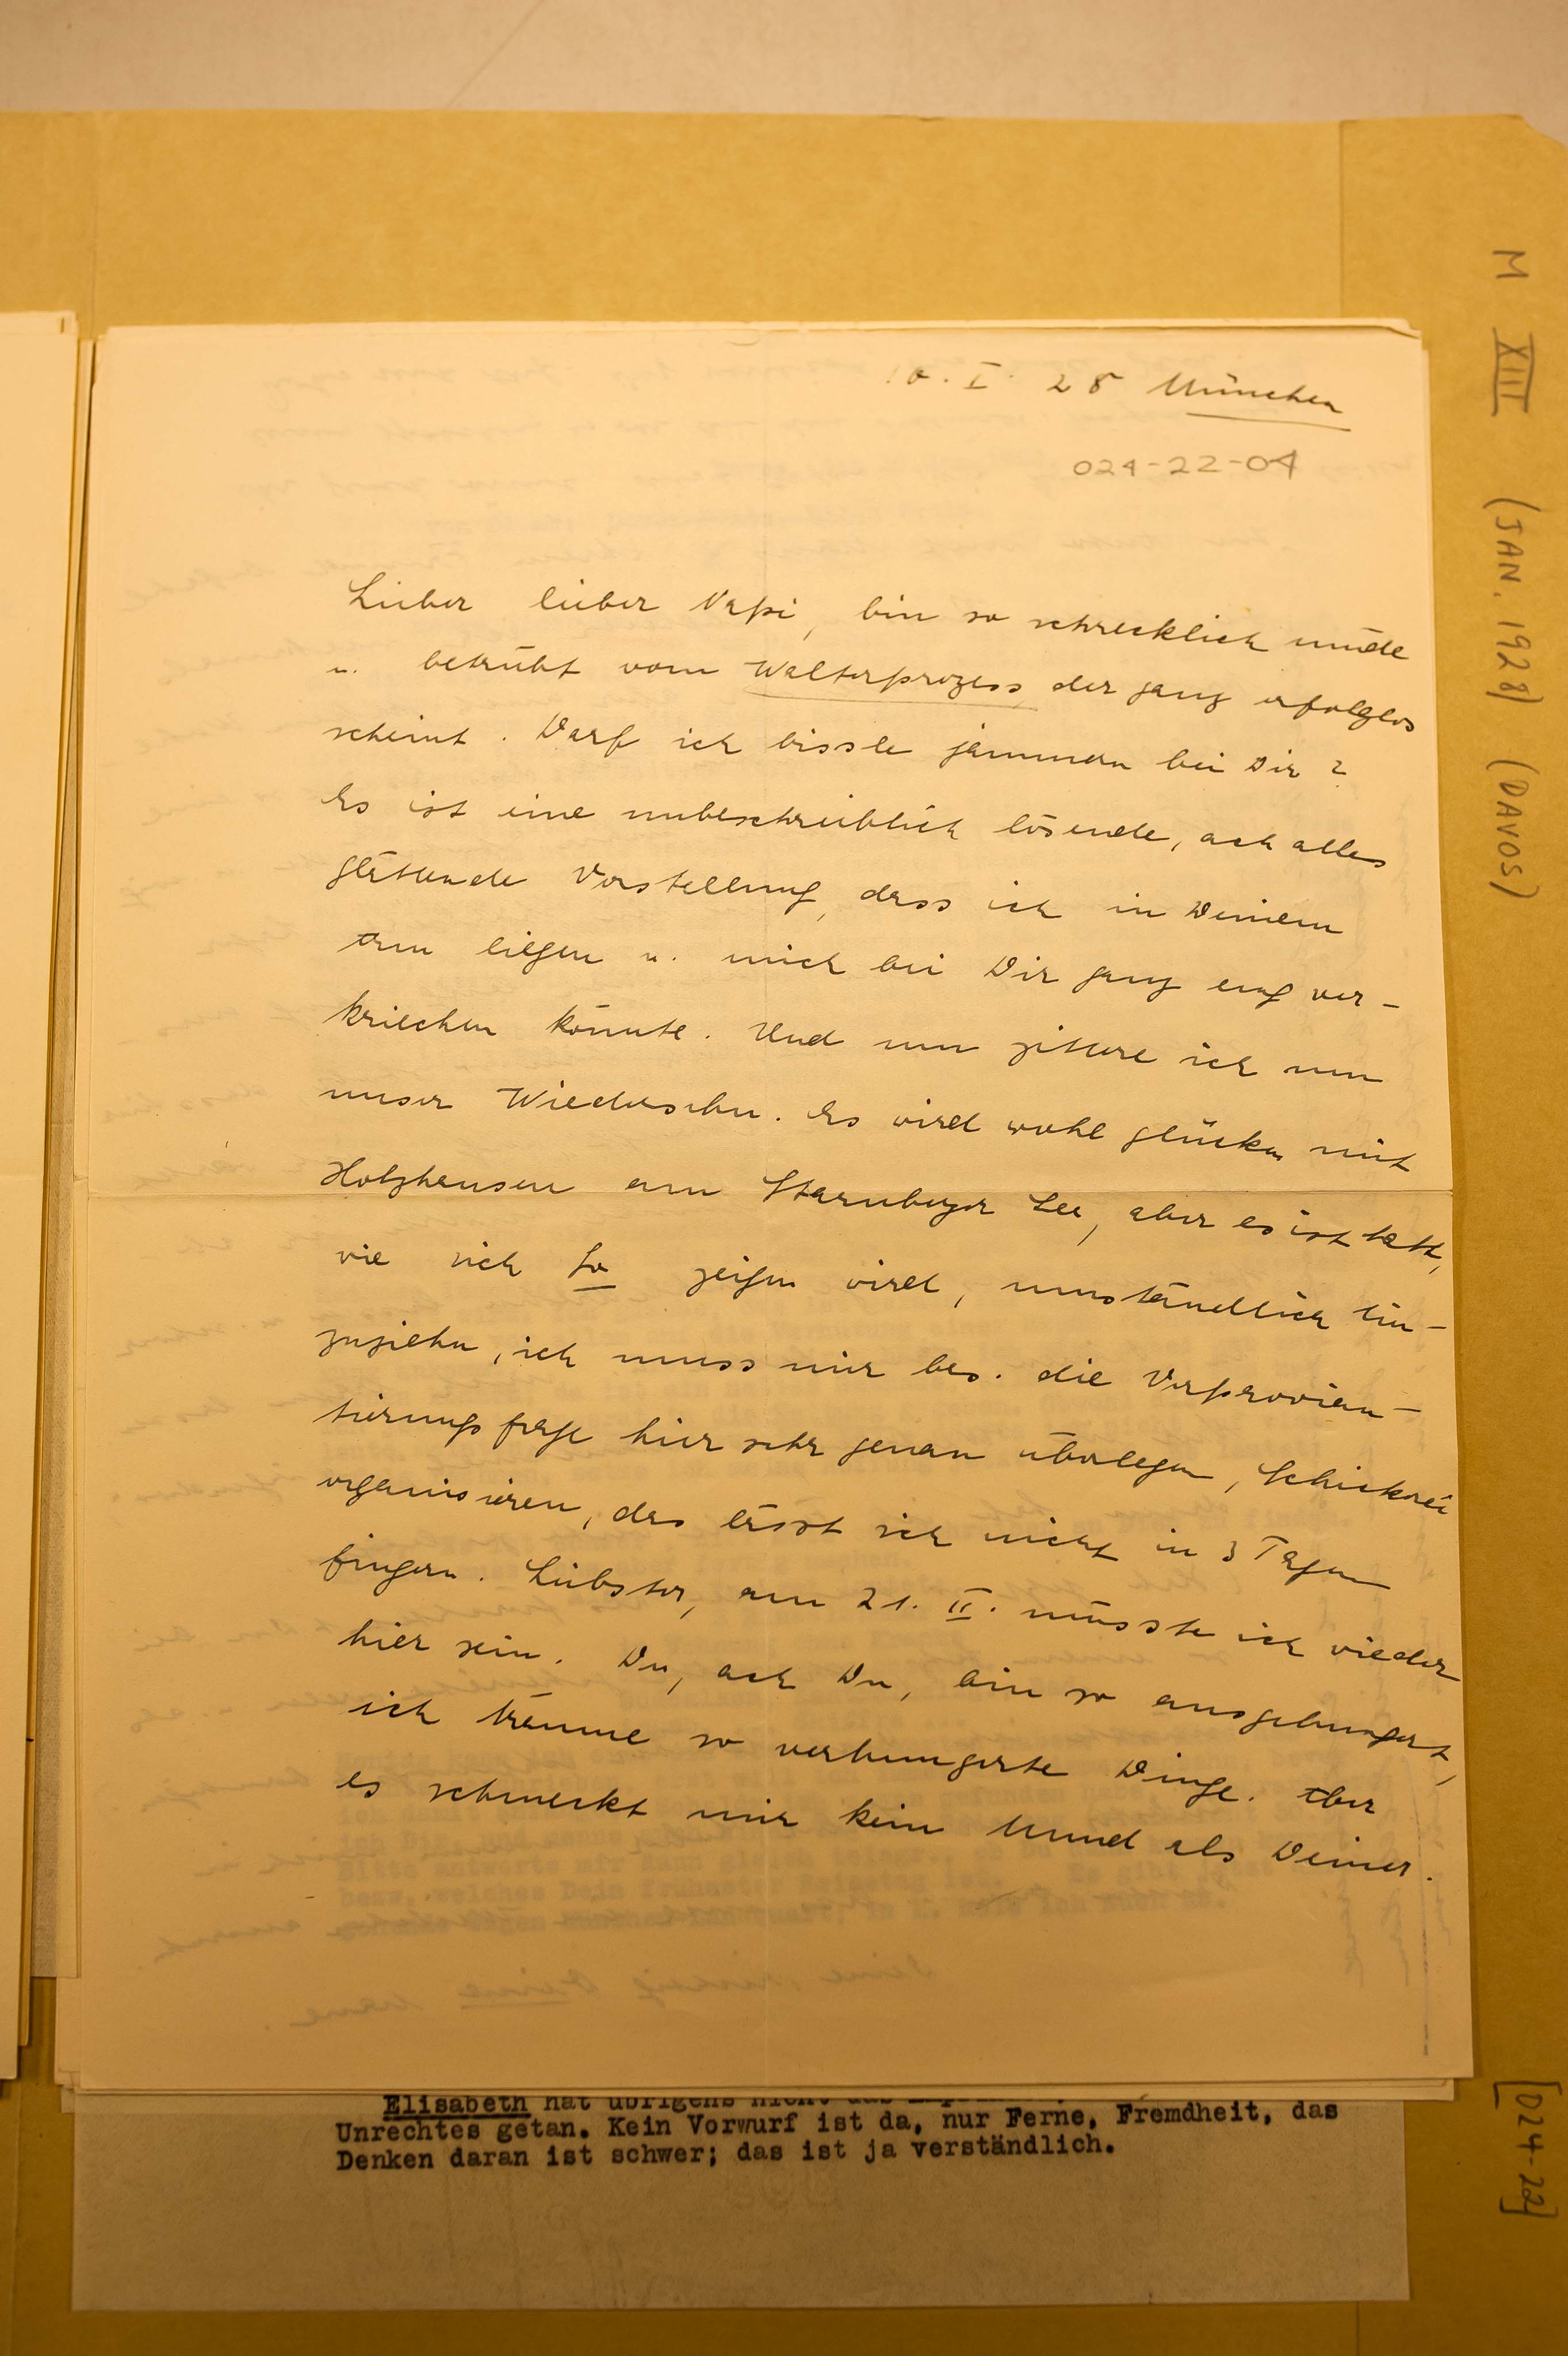 10. I. 28 München
024-22-04
Lieber lieber Napi, bin so schrecklich müde
u. betrübt vom Walterprozess, der ganz erfolglos
scheint. Darf ich bissle jammern bei Dir?
Es ist eine unbeschreiblich lösende, ach alles
glättende Vorstellung, dass ich in Deinem
Arm liegen u. mich bei Dir ganz eng ver-
kriechen könnte. Und nun zittere ich um
unser Wiedersehn. Es wird wohl glücken mit
Holzhausen am Starnberger See, aber es ist kalt,
wie sich zeigen wird, umständlich hin-
zuziehn, ich muss mir bes. die Verprovian-
tierungsfrage hier sehr genau überlegen, Schickerei
organisieren, das lässt sich nicht in 3 Tagen
fingern. Liebster, am 21. II. müsste ich wieder
hier sein. Du, ach Du, bin so ausgehungert,
ich träume so verhungerte Dinge. Aber
es schmeckt mir kein Mund als Deiner.
Elisabeth hat übrigens nicht das
Unrechtes getan. Kein Vorwurf ist da, nur Ferne, Fremdheit, das
Denken daran ist schwer; das ist ja verständlich.
M XIII (JAN. 1928) (DAVOS)
[024-22]